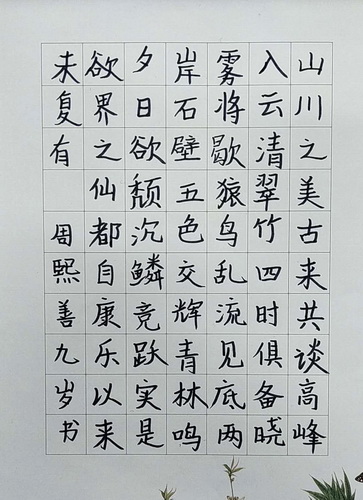 山川之美古来共谈高峰
入云清翠竹四时俱备晓
雾将歇猿鸟乱流见底两
岸石壁五色交辉青林鸣
夕日欲颓沉鳞竞跃实是
欲界之仙都自康乐以来
未复有 周熙善九岁书